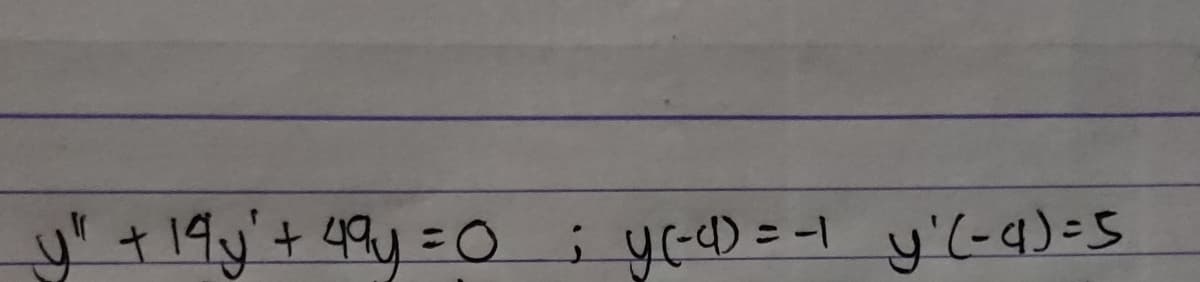 y" + 14y' + 49y = 0 ; y(-4) = -1 y'(-4) = 5